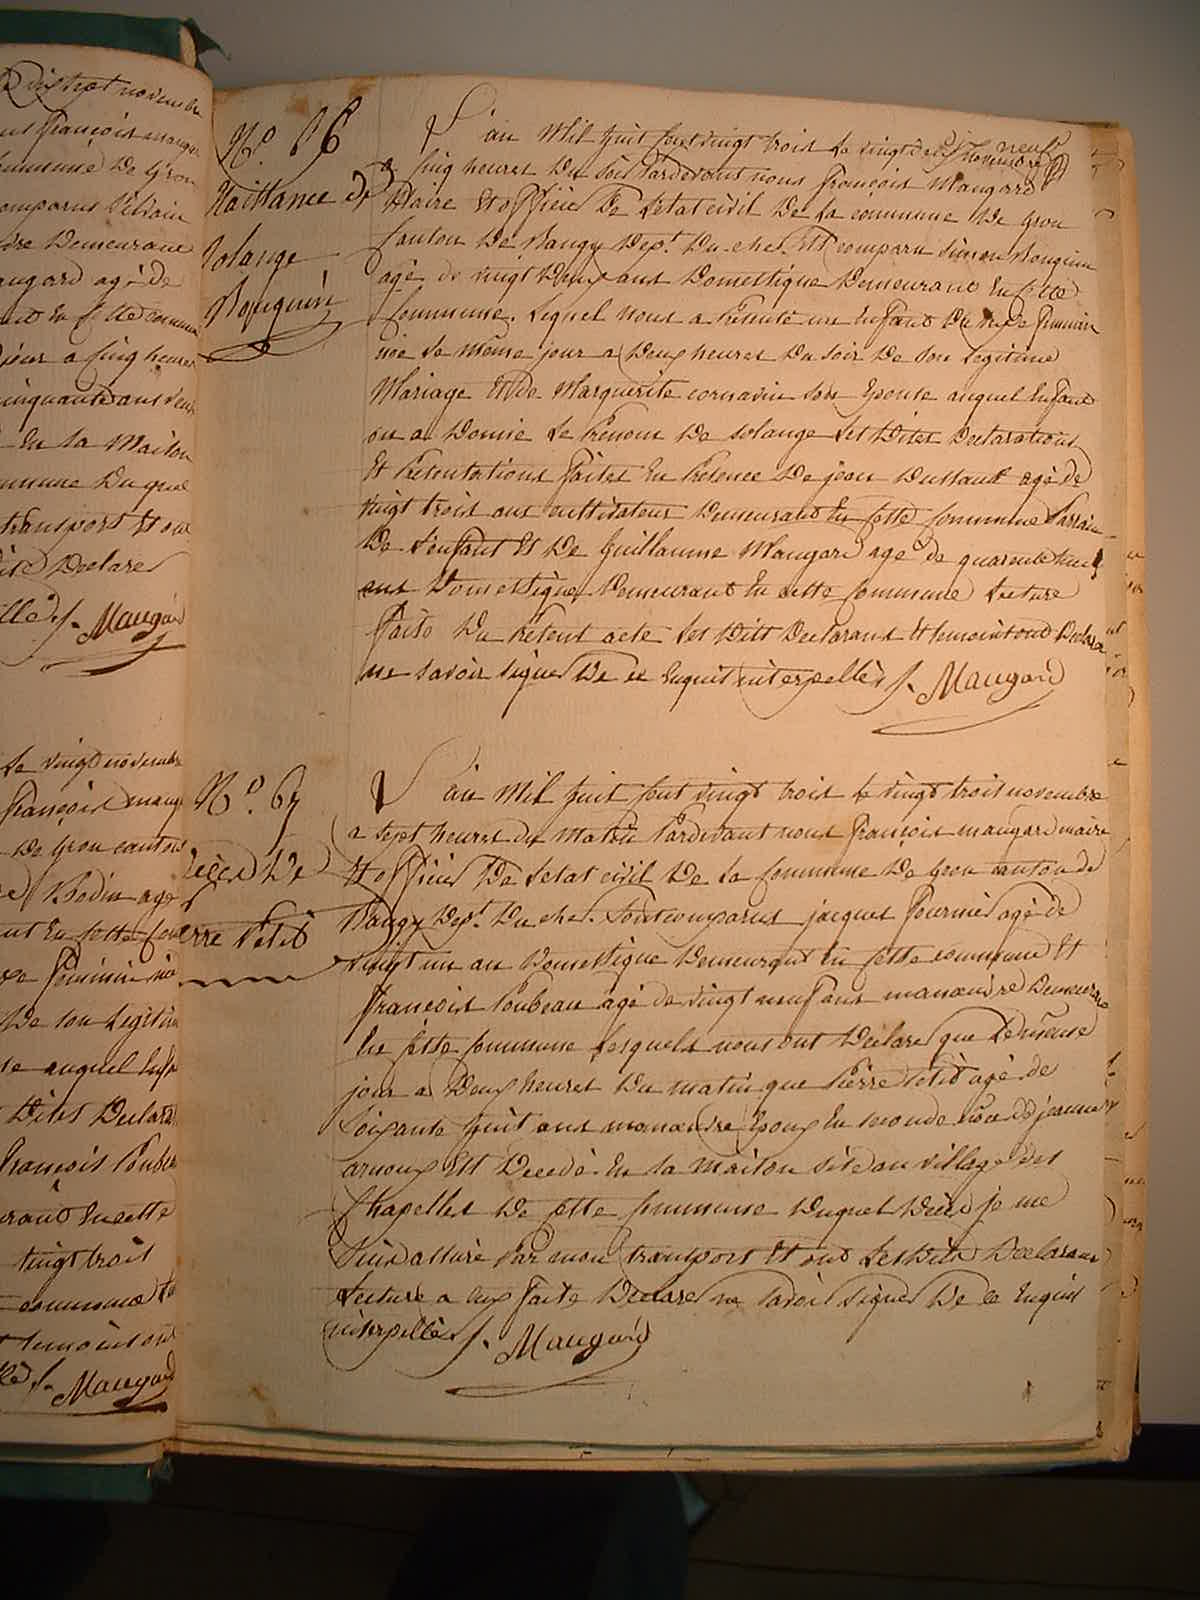 vingt sept novembre
françois maugar
commune De Gron
comparus Silvain
Demeurant
augard agé de
En cette commune
jour a cinq heures
cinquante ans
En sa Maison
commune Duquel
transport Et ont
Declare
f. Maugard
Le vingt novembre
françois maug
De gron canton
Bodin agé
En cette
feminin née
De son Legitime
auquel Enf
Dites Declara
françois Loubeau
En cette
vingt trois
commune
temoins ont
f. Maugard
N.º 66
Naissance de
Solange
Rouquin
L'an Mil huit cent vingt trois Le vingt neuf novembre
a cinq heures Du soir Pardevant nous françois Maugard
Maire Et officier De L'état civil De La commune De gron
Canton De Baugy Dept. Du cher Est comparu Simon Rouquin
agé de vingt Deux ans Domestique Demeurant En cette
Commune. Lequel nous a Présenté une Enfant Du sexe feminin
née Le même jour a Deux heures Du soir De son Legitime
Mariage Et De Marguerite cornavin son Epouse auquel Enfant
on a Donné Le Prénom De Solange Les Dites Declarations
Et Présentations faites En Présence De jean Dussault agé de
vingt trois ans cultivateur Demeurant En cette commune Parrain
De L'enfant Et De Guillaume Maugard agé de quarente
ans Domestique Demeurant En cette commune Lecture
faite Du Présent acte Les Dits Declarant Et temoins ont Declaré
ne savoir signer De ce Enquis interpellés f. Maugard
N.º 67
Décès De
Pierre Petit
L'an Mil huit cent vingt trois Le vingt trois novembre
a sept heures du Matin Pardevant nous françois maugard maire
Et officier De L'état civil De La Commune De gron canton de
Baugy Dept. Du cher. Sont comparus jacques fournié agé de
vingt un an Domestique Demeurant En cette commune Et
françois Loubeau agé de vingt neuf ans manœuvre Demeurant
En cette commune Lesquels nous ont Déclaré que Le même
jour a Deux heures Du matin que Pierre Petit agé de
soixante huit ans manœuvre Epoux En seconde noce De jeanne
arnoux Est Décédé En sa maison sise au village des
Chapelles De cette commune Duquel Décès je me
suis assuré Par mon transport Et ont Lesdits Declarans
Lecture a Eux faite Declaré ne savoir signer De ce Enquis
interpellés f. Maugard